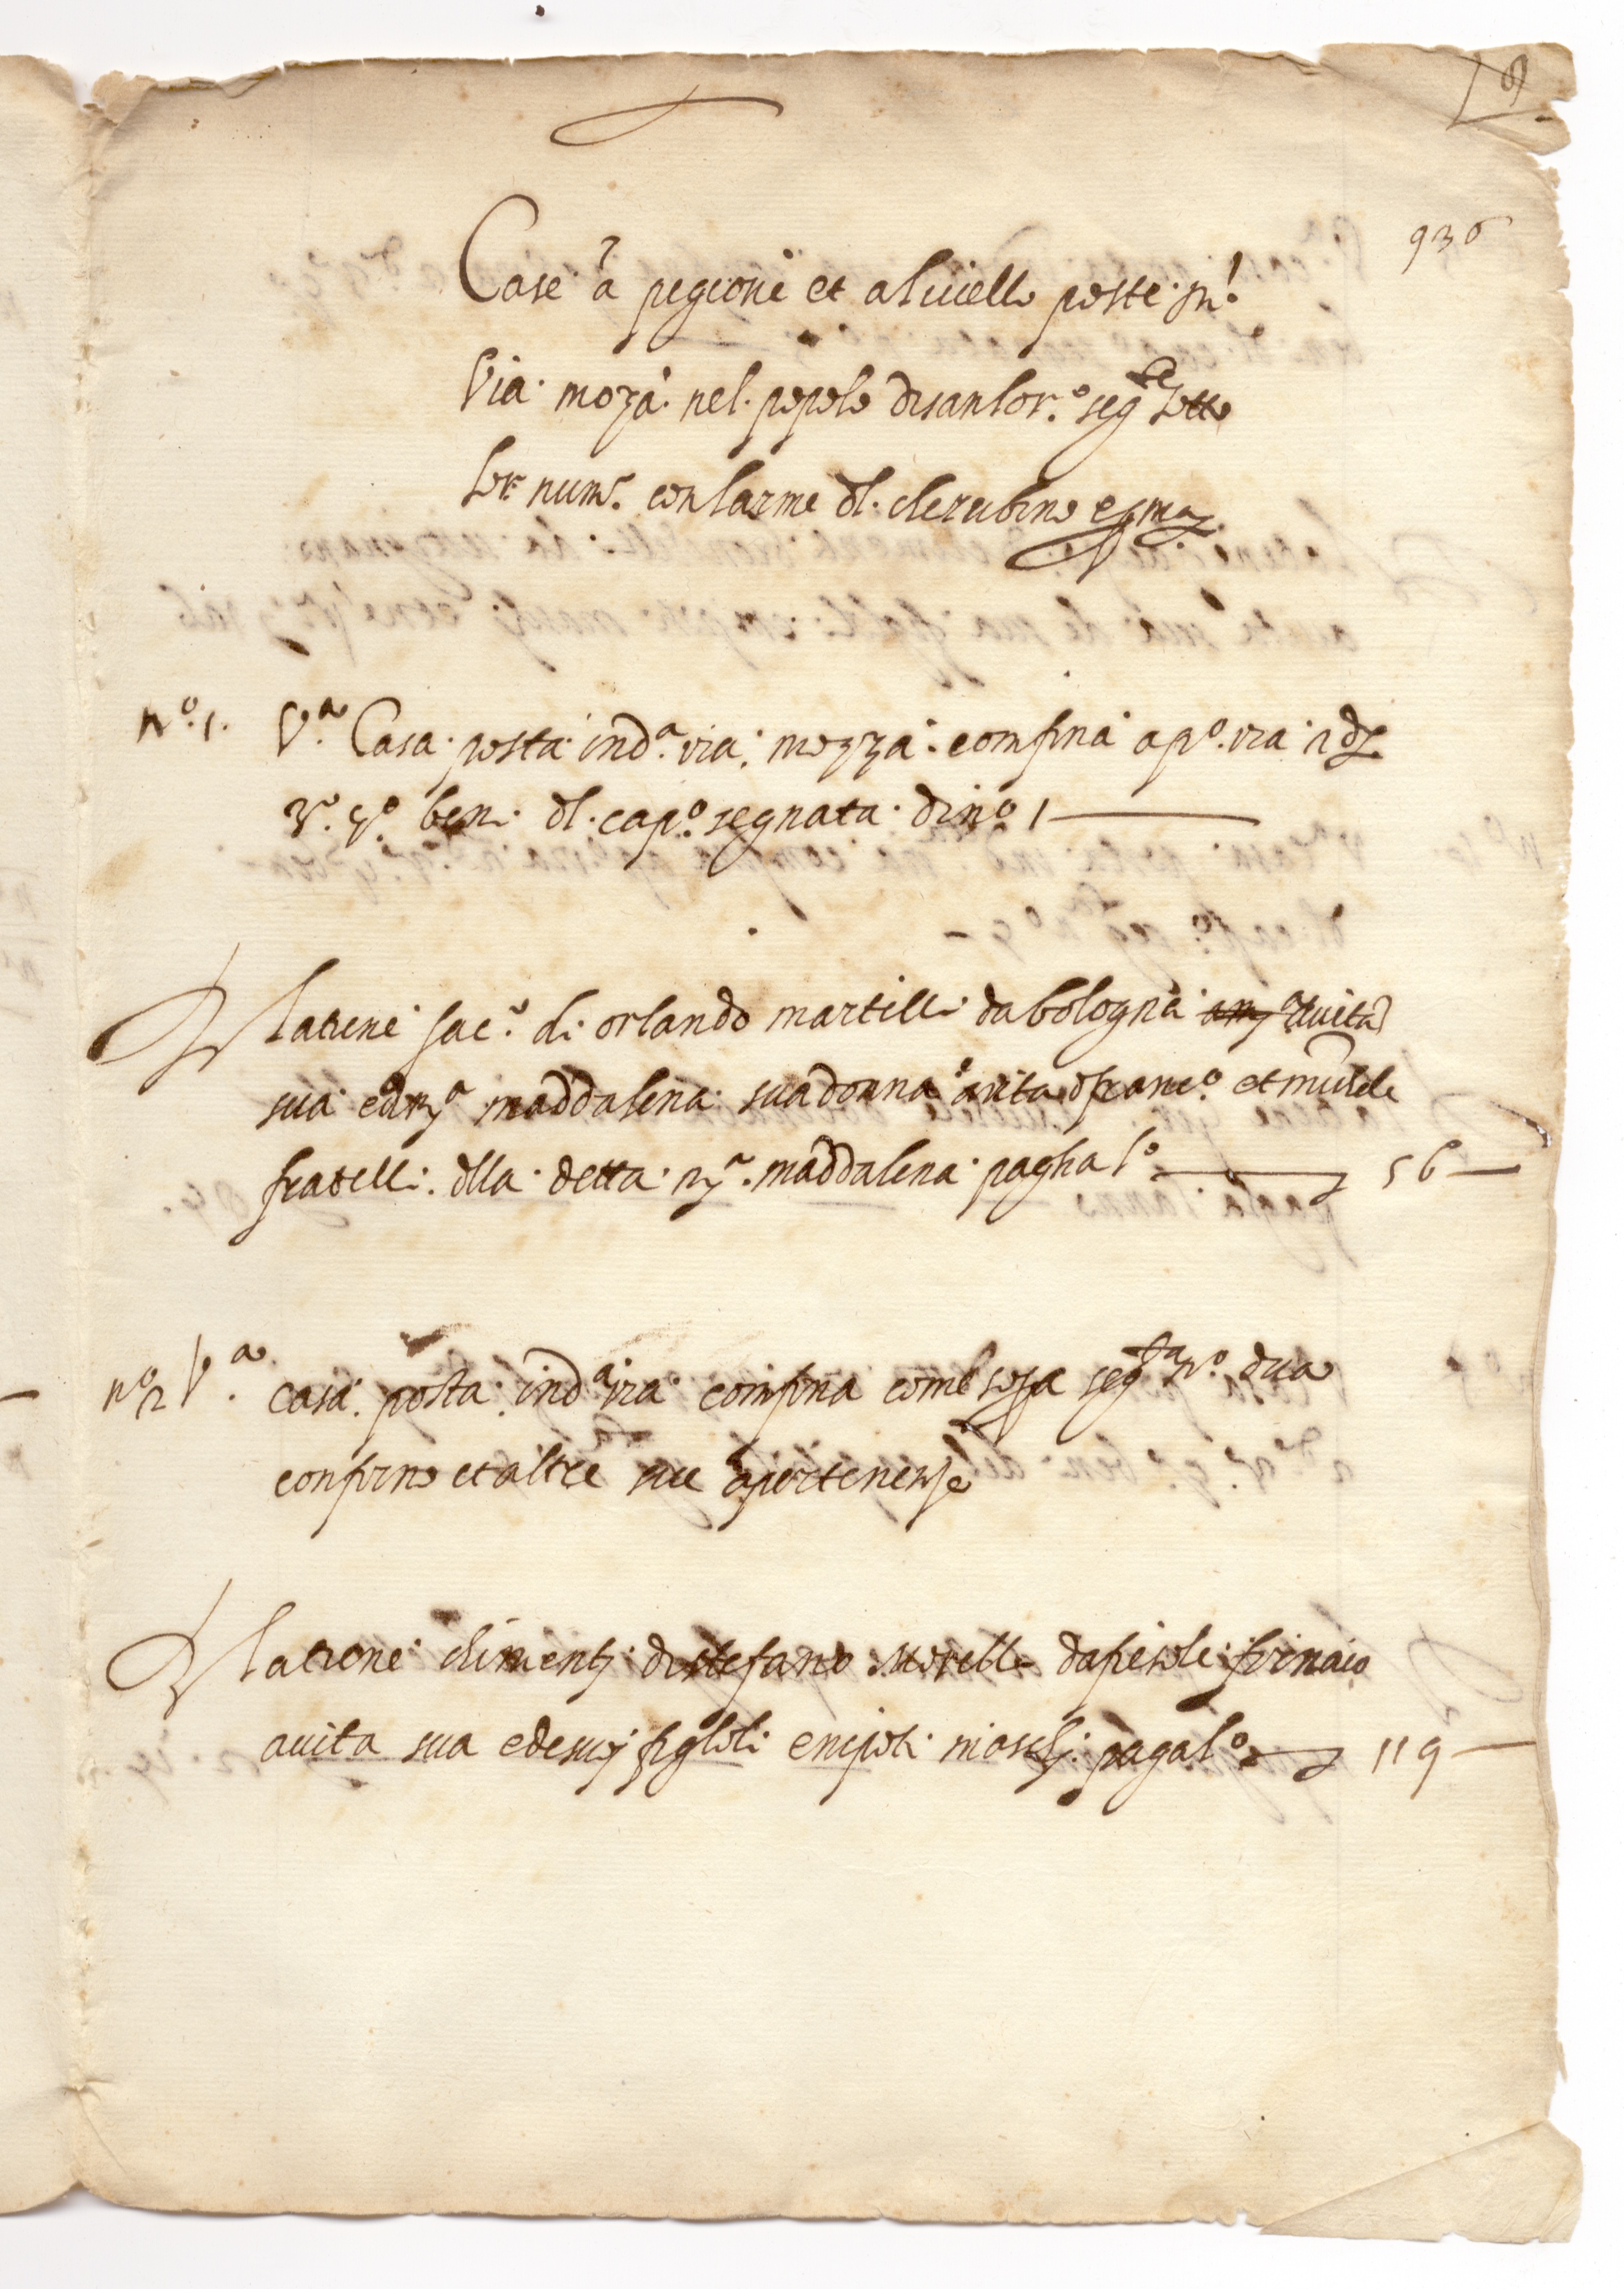 9
936
Case a pigione et a livello poste in
Via moza nel popolo disanlor.º seg.te sotto
lor num.º con larme dl. cherubino
nº. 1. V.ª Casa posta ind.ª via mozza confina a pº. via 2
3º. 4º. beni dl. capº. segnata di nº 1
la tiene Jac.º di orlando martelli da bologna avita
sua ed m.ª maddalena sua donna avita franc.º et
fratelli della detta m.ª maddalena pagha lº 56
nº 2 V.ª casa posta ind.ª via confina come sopra seg.ta nº. dua
confino et altre sue apartenense
la tiene climenti di stefano Morelli da fiesole fornaio
avita sua e de suoj figloli e nipoti maschj paga lº 119